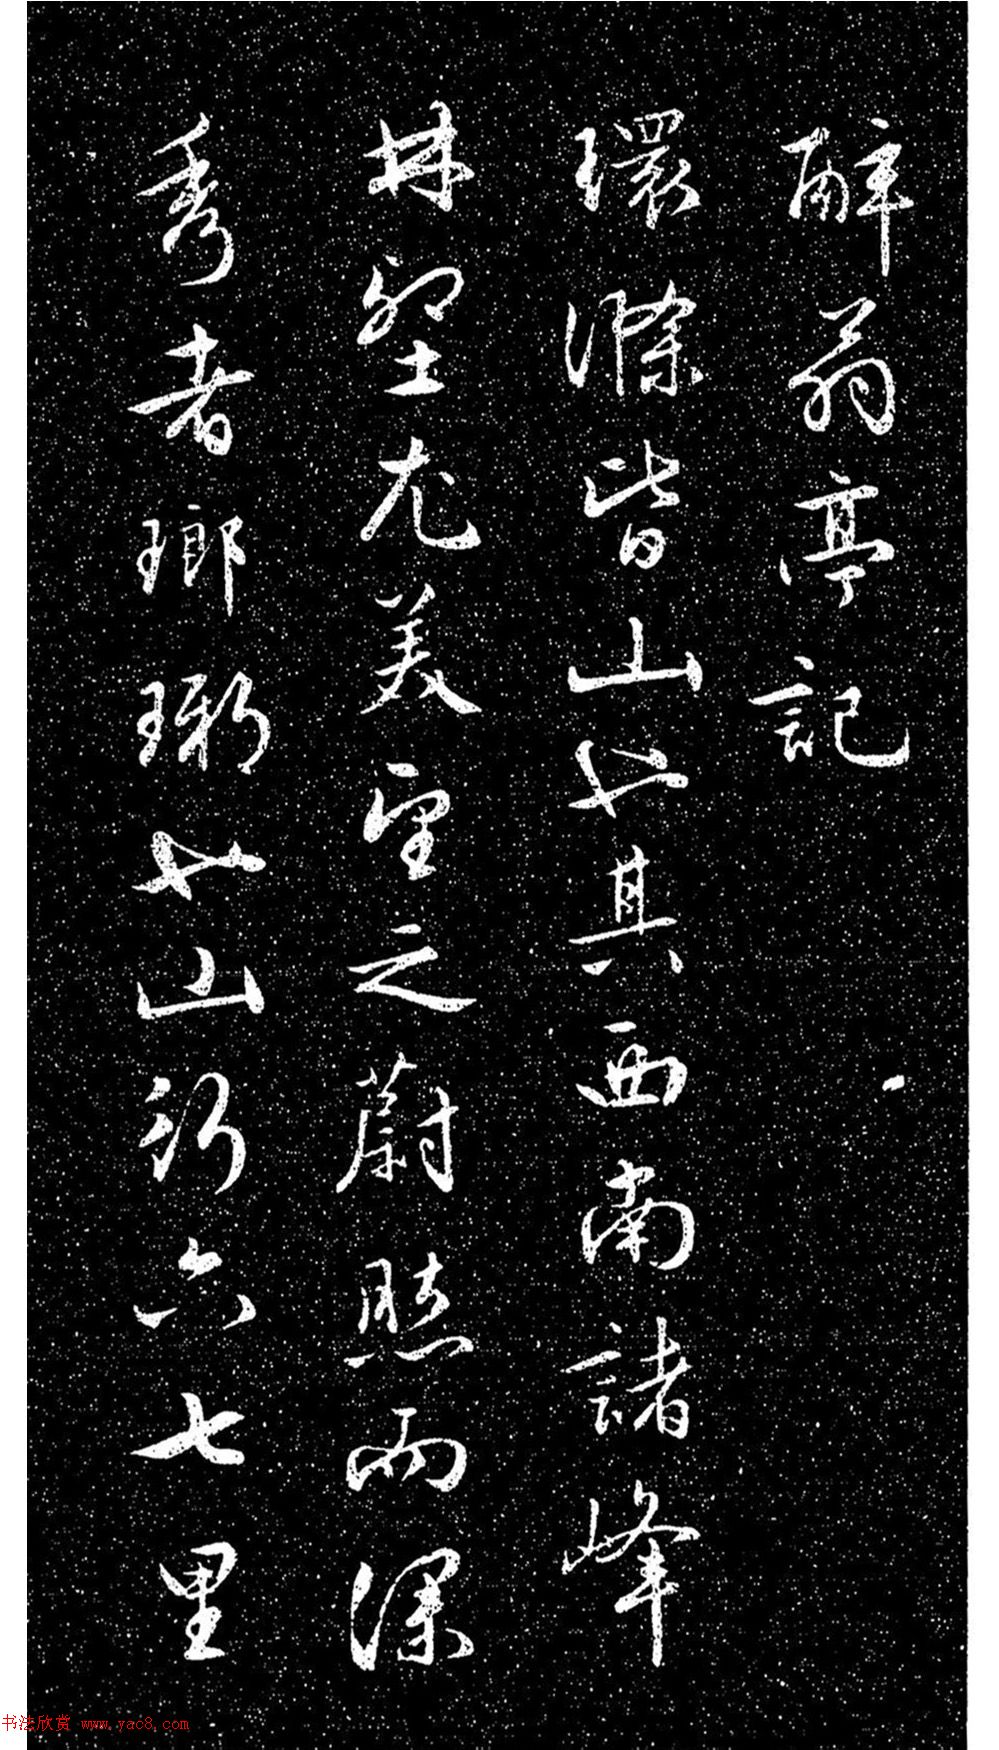 醉翁亭記
環滁皆山也其西南諸峰
林壑尤美望之蔚然而深
秀者瑯琊也山行六七里
书法欣赏 www.yac8.com